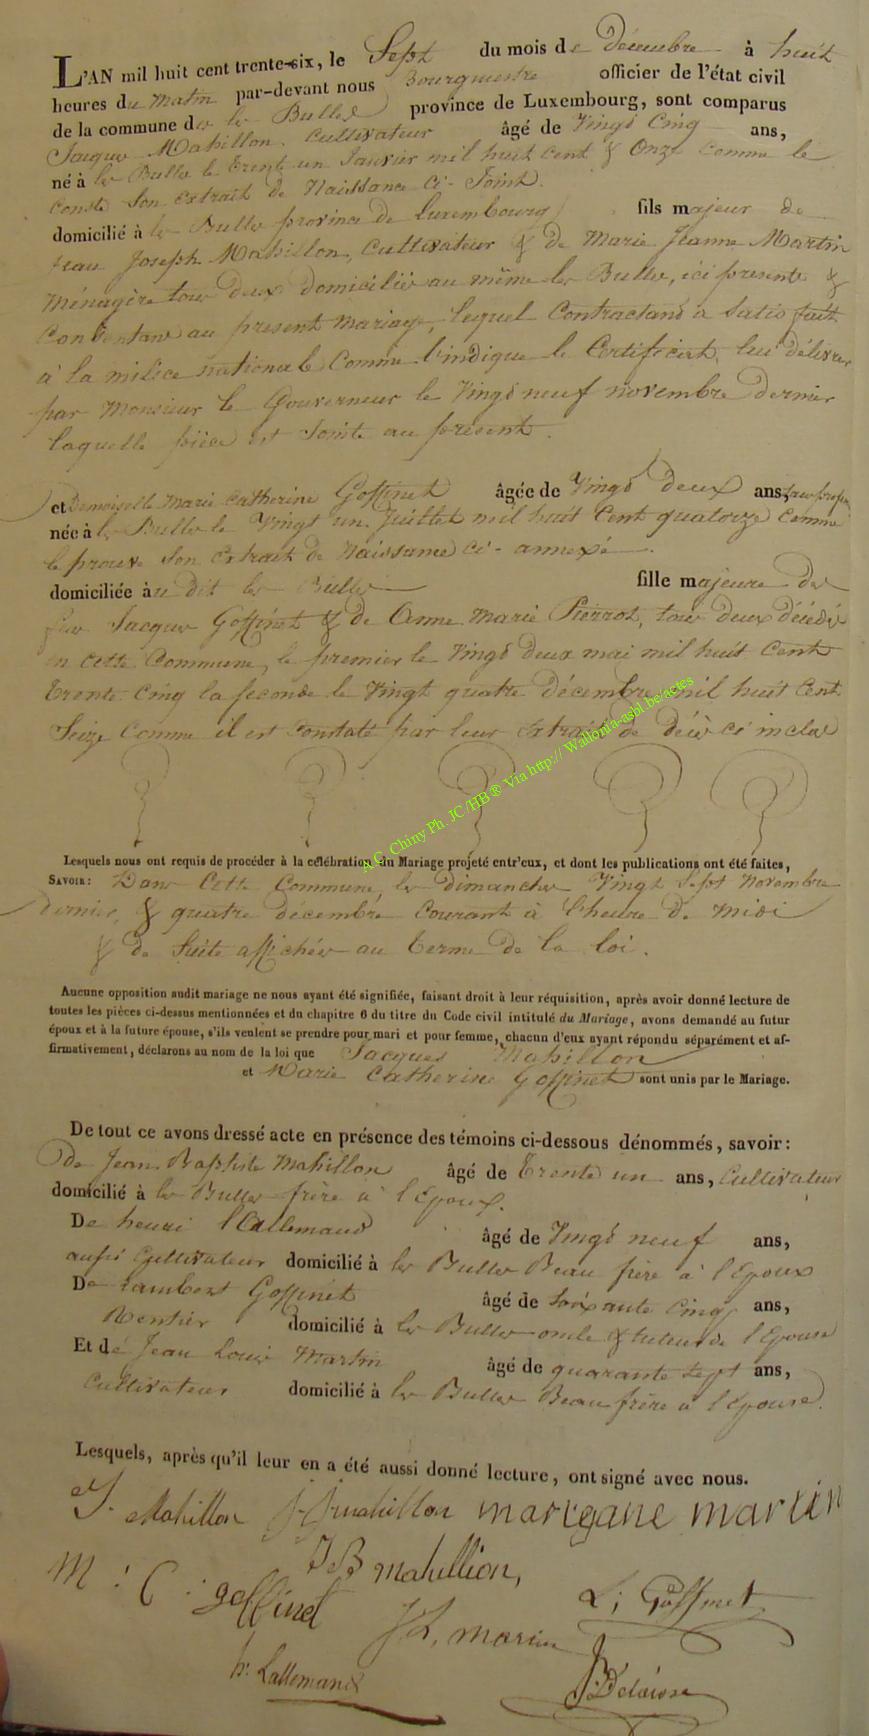 L'AN mil huit cent trente-six, le Sept du mois de décembre à huit
heures du matin par-devant nous Bourgmestre officier de l'état civil
de la commune de les Bulles province de Luxembourg, sont comparus
Jacques Mahillon, Cultivateur âgé de Vingt Cinq ans,
né à les Bulles le trente un Janvier mil huit cent & Onze comme le
Conste son extrait de Naissance Ci-Joint.
domicilié à les Bulles province de Luxembourg, fils majeur de
Jean Joseph Mahillon, Cultivateur & de Marie Jeanne Martin
Ménagère tous deux domiciliés au même les Bulles, ici présents &
Consentans au présent mariage, lequel Contractant a satisfait
à la milice nationale Comme l'indique le Certificat, lui délivrer
par Monsieur le Gouverneur le Vingt neuf novembre dernier
laquelle pièce est Jointe au présent.
et Demoiselle Marie Catherine Goffinet âgée de Vingt deux ans,
née à les Bulles le Vingt un Juillet mil huit Cent quatorze Comme
le prouve Son Extrait de Naissance ci-annexé.
domiciliée au dit les Bulles fille majeure de
feu Jacques Goffinet & de Anne Marie Pierrot, tous deux décédés
en cette Commune, le premier le Vingt deux mai mil huit Cent
trente Cinq la seconde le Vingt quatre décembre mil huit Cent
Seize Comme il est Constaté par leur Extrait de décès ci inclus
A.C. Chiny Ph. JC/HB® Via http:// Wallonia-asbl.be/actes
Lesquels nous ont requis de procéder à la célébration du Mariage projeté entr'eux, et dont les publications ont été faites,
SAVOIR: Dans Cette Commune, les dimanches Vingt Sept Novembre
dernier, & quatre décembre Courant à l'heure de midi
& de Suite affichées au terme de la loi.
Aucune opposition audit mariage ne nous ayant été signifiée, faisant droit à leur réquisition, après avoir donné lecture de
toutes les pièces ci-dessus mentionnées et du chapitre 6 du titre du Code civil intitulé du Mariage, avons demandé au futur
époux et à la future épouse, s'ils veulent se prendre pour mari et pour femme, chacun d'eux ayant répondu séparément et af-
firmativement, déclarons au nom de la loi que Jacques Mahillon
et Marie Catherine Goffinet sont unis par le Mariage.
De tout ce avons dressé acte en présence des témoins ci-dessous dénommés, savoir:
de Jean Baptiste Mahillon âgé de trente un ans, Cultivateur
domicilié à les Bulles frère à l'Epoux.
De henri lallemand âgé de Vingt neuf ans,
aussi Cultivateur domicilié à les Bulles Beau frère à l'Epoux
De Lambert Goffinet âgé de Soixante Cinq ans,
Rentier domicilié à les Bulles oncle & tuteur de l'Epouse
Et de Jean Louis Martin âgé de quarante Sept ans,
Cultivateur domicilié à les Bulles Beau frère à l'Epouse.
Lesquels, après qu'il leur en a été aussi donné lecture, ont signé avec nous.
J. Mahillon J J mahillon marigane martin
M : C : goffinet J B mahillion,
L; Goffinet
J L, martin
h: Lallemand